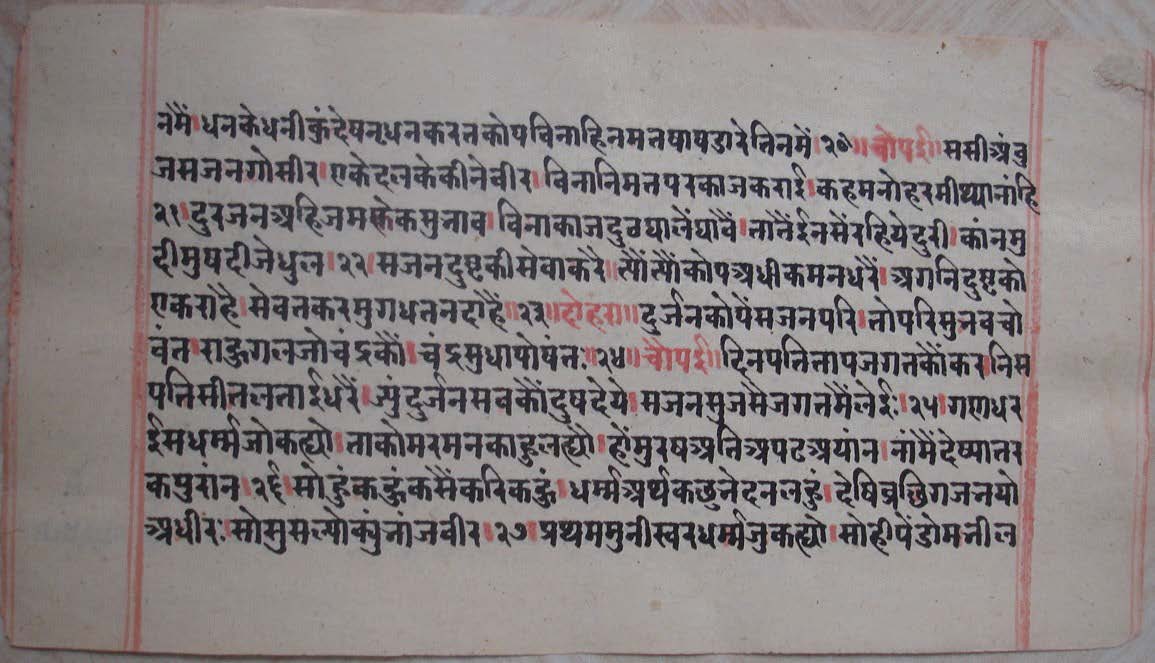 नमैं।धनकेधनीकुंदेषनृधनकरतकोपविनाहिनमतपाषडारेतिनमें।२०॥चोपई॥ससीअंबु
जसजनगोसीर।एकेदलकेकीनेवीर।विनानिमतपरकाजकराई।कहमनोहरमीथ्यानांहि
२१।दुरजनअहिजमसेकसुनाव।विनाकाजदुठघालेंघावैं।तातैंईनसैंरहियेदुरी।कांनमु
दीमुषदीजेधुल।२२।सजनदुष्टकीसेवाकरै।त्यौंत्यौंकोपअधीकमनधरैं।अगनिदुष्टको
एकराहै।सेवतकरमुगधतनदाहैं॥२३॥दोहरा॥दुर्जनकोपेंसजनपरि।तोपरिमुनवचो
वंत।राहुगलजोचंद्रकौं।चंद्रसुधापोषंत:॥२४॥चौपई॥दिनपतितापजगतकौंकर।निस
पतिसीतलताईधरैं।ज्युंदुर्जनसबकौंदुषदेये।सजनसुजसैजगतमैंलेई:।२५।गणधर
ईसधर्म्मजोकह्यो।ताकोमरमनकाहुलह्यो।होंमुरषअतिअपढअयांन।नांमैंदेष्यातर
कपुरांन।२६।सोहुंकहुंकसैंकरिकहुं।धर्म्मअर्थकछुनेदनलहुं।देषिव्रछिगजनयो
अधीर:सोसुसल्योक्युंनांजवीर।२७।प्रथममुनीस्वरधर्म्मजुकह्यो।सोहीपेंडोमनील